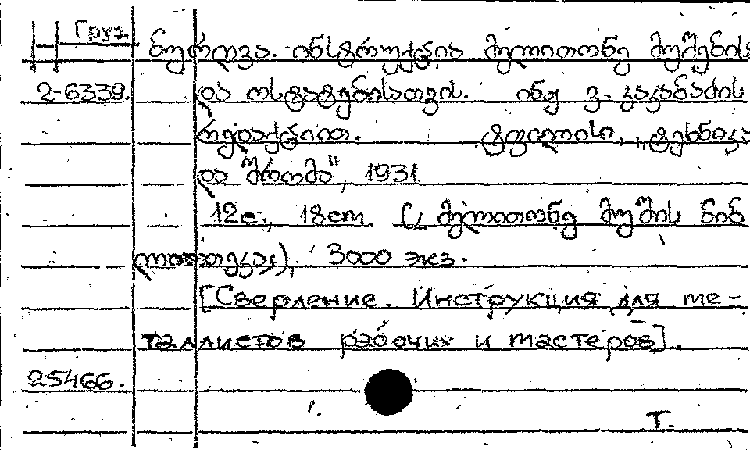 Груз.
ბურღვა. ინსტრუქცია მელითონე მუშების
2-6339. და ოსტატებისათვის. ინჟ ვ. კაკაბაძის
რედაქციით. ტფილისი, „ტექნიკა
და შრომა“, 1931
12с., 18cm. (მელითონე მუშის ბიბ
ლიოთეკა), 3000 экз.
[Сверление. Инструкция для ме-
таллистов рабочих и мастеров].
25466.
Т.